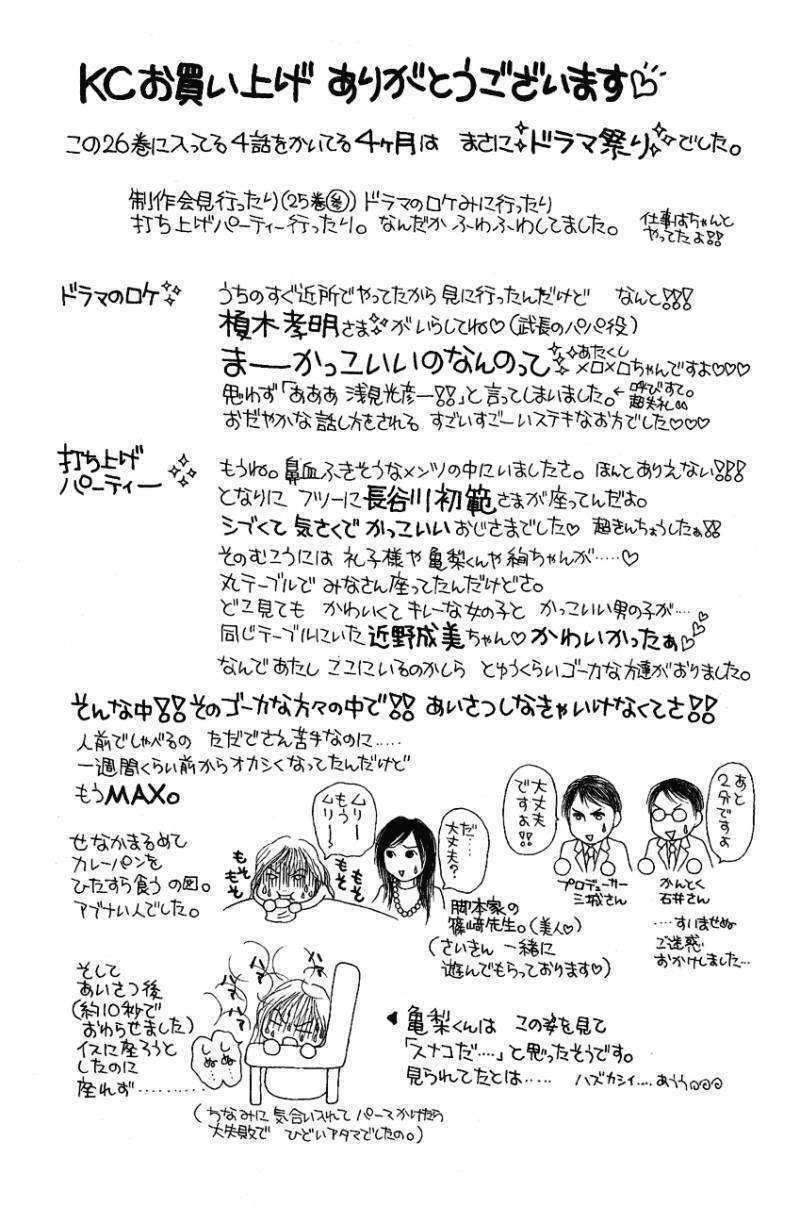 KCお買い上げ ありがとうございます♡
この26巻に入ってる4話をかいてる4ヶ月は まさにドラマ祭りでした。
制作会見行ったり(25巻参)ドラマのロケみに行ったり
打ち上げパーティー行ったり。なんだか ふわふわしてました。
仕事はちゃんと
やってたよ!!
ドラマのロケ
うちのすぐ近所でやってたから 見に行ったんだけど なんと!!!
榎木孝明さまがいらしてね♡(武長のパパ役)
まーーかっこいいのなんのって あたくし
メロメロちゃんですよ♡♡♡
思わず「あああ 浅見光彦ー!!」と言ってしまいました。←呼びすて。
超失礼
おだやかな話し方をされる すごいすごーいステキなお方でした♡♡♡
打ち上げ
パーティー
もうね。鼻血ふきそうなメンツの中にいましたさ。ほんとありえない!!!
となりに フツーに長谷川初範さまが座ってんだよ。
シブくて 気さくで かっこいいおじさまでした♡ 超きんちょうしたぁ!!
そのむこうには 礼子様や亀梨くんや絢ちゃんが……♡
丸テーブルで みなさん座ってたんだけどさ。
どこ見ても かわいくて キレーな女の子と かっこいい男の子が…♡
同じテーブルにいた 近野成美ちゃん♡かわいかったぁ♡♡
なんであたし ここにいるのかしら とゆうくらいゴーカな方達がおりました。
そんな中!!そのゴーカな方々の中で!! あいさつしなきゃいけなくてさ!!
人前でしゃべるの ただでさえ苦手なのに……
一週間くらい前からオカシくなってたんだけど
もうMAX。
せなかまるめて
カレーパンを
ひたすら食う の図。
アブナい人でした。
もそ
もそ
ムリー
もう
ムリー
もそ
もそ
だ…
大丈夫?
脚本家の
篠﨑先生。(美人♡)
(さいきん 一緒に
遊んでもらっております♡)
大丈夫
ですよ!!
プロデューサー
三城さん
あと
2分ですよ
かんとく
石井さん
……すいませぬ
ご迷惑
おかけしました…
そして
あいさつ後
(約10秒で
おわらせました)
イスに座ろうと
したのに
座れず…………
ハァ
ハァ
ハァ
ハァ
しぬ…
しぬ…
亀梨くんは この姿を見て
「スナコだ……」と思ったそうです。
見られてたとは…… ハズカシイ…… あうう
(ちなみに 気合い入れて パーマかけたら
大失敗で ひどいアタマでしたの。)